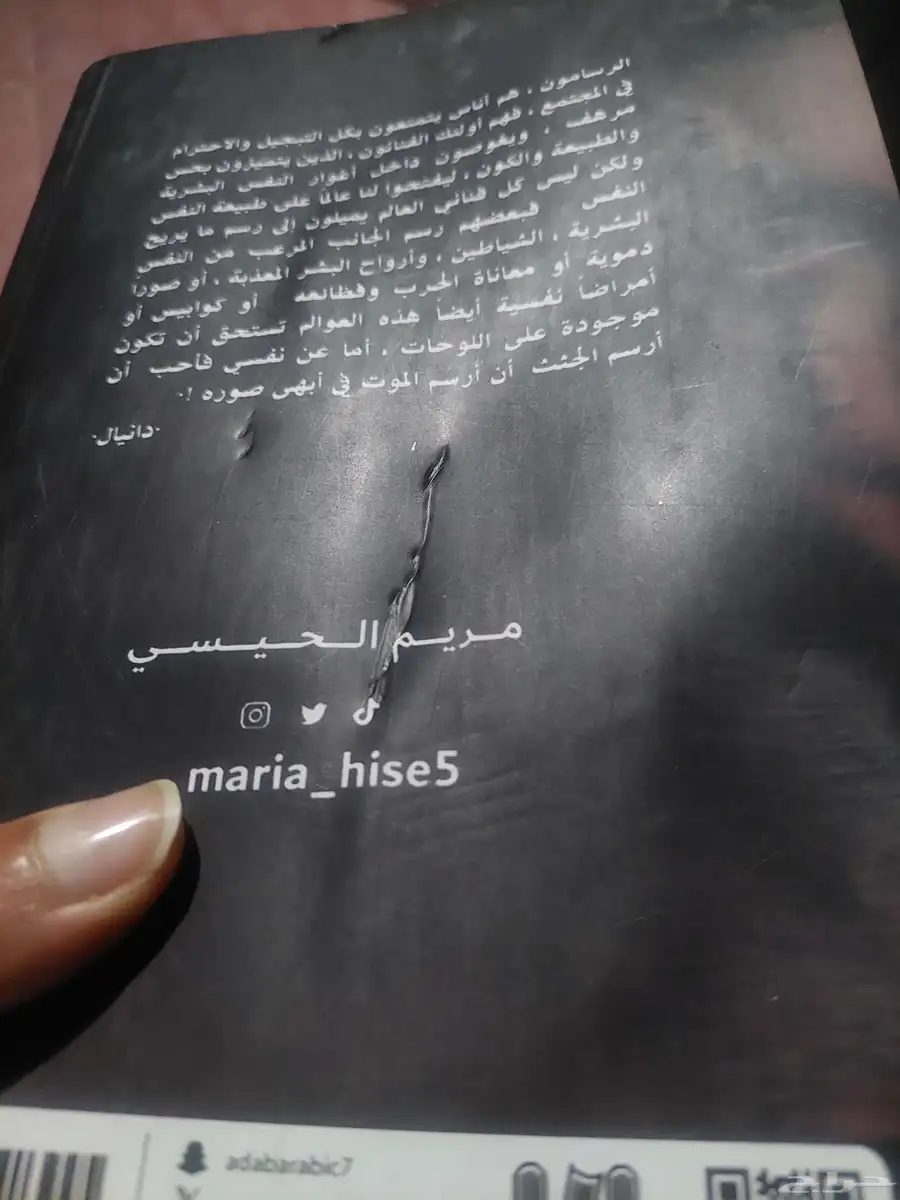 الرسامون ، هم أناس يتمتعون بكل التبجيل والاحترام
في المجتمع ، فهم أولئك الفنانون ، الذين يتميزون بحس
مرهف ، ويغوصون داخل أغوار النفس البشرية
والطبيعة والكون ، ليفتحوا لنا عالمًا على طبيعة النفس
ولكن ليس كل فناني العالم يميلون إلى رسم ما يريح
النفس فبعضهم رسم الجانب المرعب من النفس
البشرية ، الشياطين ، وأرواح البشر المعذبة ، أو صورا
دموية أو معاناة الحرب وفظائعه أو كوابيس أو
أمراضاً نفسية أيضاً هذه العوالم تستحق أن تكون
موجودة على اللوحات ، أما عن نفسي فأحب أن
أرسم الجثث أن أرسم الموت في أبهى صوره !.
.دانيال.
مريم الحيسي
maria_hise5
adabarabic7
حراج